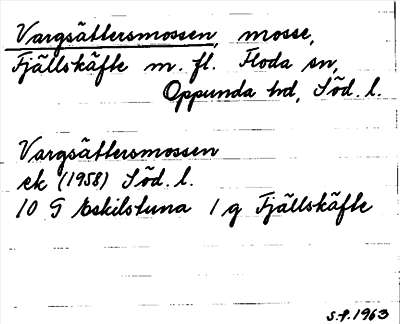 Vargsättersmossen, mosse,
Fjällskäfte m. fl. Floda sn,
Oppunda hd, Söd. l.
Vargsättersmossen
ek (1958) Söd. l.
10 G Eskilstuna 1 g Fjällskäfte
S.P. 1963